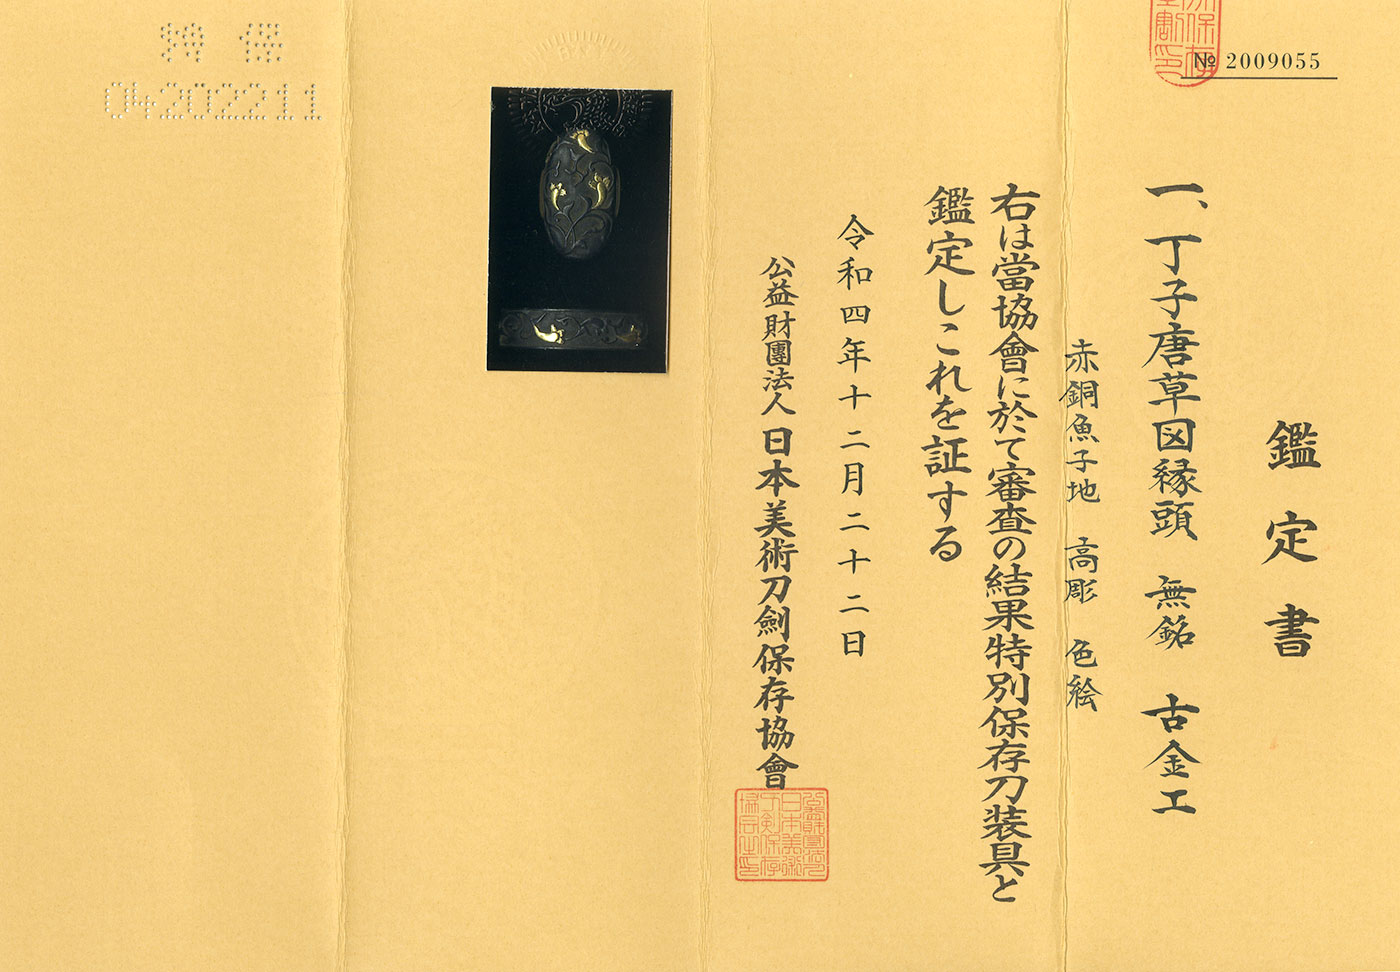 № 2009055
鑑定書
一、丁子唐草図縁頭　無銘　古金工
赤銅魚子地　高彫　色絵
右は當協會に於て審査の結果特別保存刀装具と
鑑定しこれを証する
令和四年十二月二十二日
公益財團法人日本美術刀劍保存協會
特保
04202211